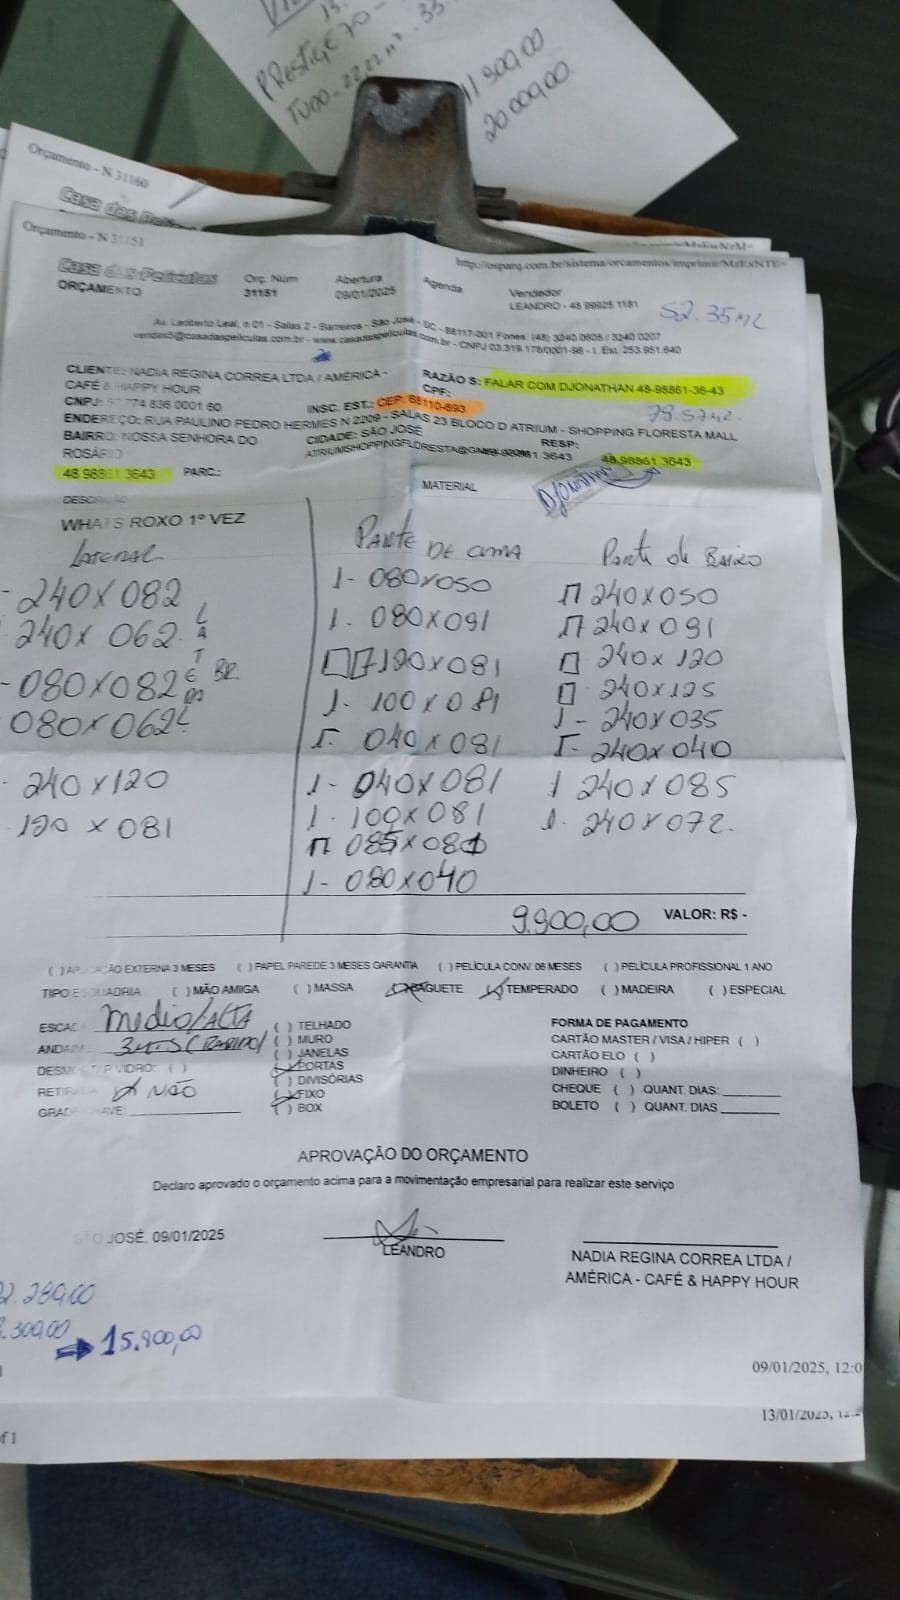 PRESTIGE 70 -
TUDO - 22,22 m² . 33
11.900,00
20.000,00
Orçamento - N 31160
Casa das Pelí
Orçamento - N 31151
http://osparq.com.br/sistema/orcamentos/imprimir/MzExNTE=
Casa das Películas
ORÇAMENTO
Org. Núm
31151
Abertura
09/01/2025
Agenda
Vendedor
LEANDRO - 48 99925 1181
52.35m2
Av. Leoberto Leal, n 01 - Salas 2 - Barreiros - São José - SC - 88117-001 Fones: (48) 3240 0605 / 3240 0207
vendas5@casadaspeliculas.com.br - www.casadaspeliculas.com.br - CNPJ 03.319.178/0001-98 - I. Est. 253.951.640
CLIENTE: NADIA REGINA CORREA LTDA / AMÉRICA -
CAFÉ & HAPPY HOUR
RAZÃO S: FALAR COM DJONATHAN 48-98861-36-43
CPF:
CNPJ: 774 836 0001 60
INSC. EST.: CEP: 88110-693
78.57m2.
ENDEREÇO: RUA PAULINO PEDRO HERMES N 2209 - SALAS 23 BLOCO D ATRIUM - SHOPPING FLORESTA MALL
BAIRRO: NOSSA SENHORA DO
ROSÁRIO
CIDADE: SÃO JOSÉ
RESP:
48 98861 3643
PARC.:
48.98861.3643
Djonathan
DESCRIÇÃO
MATERIAL
WHATS ROXO 1º VEZ
Lateral
- 240 x 082
240 x 062
- 080 x 082
080 x 062
LATERAL
BR
- 240 x 120
120 x 081
PARTE DE CIMA
1 - 080 x 050
1 - 080 x 091
120 x 081
1 - 100 x 081
040 x 081
1 - 040 x 081
1 - 100 x 081
085 x 081
1 - 080 x 040
Parte de BAIXO
240 x 050
240 x 091
240 x 120
240 x 125
1 - 240 x 035
240 x 040
1 240 x 085
1 - 240 x 072.
9.900,00 VALOR: R$ -
( ) APLICAÇÃO EXTERNA 3 MESES ( ) PAPEL PAREDE 3 MESES GARANTIA ( ) PELÍCULA CONV. 06 MESES ( ) PELÍCULA PROFISSIONAL 1 ANO
TIPO ESQUADRIA ( ) MÃO AMIGA ( ) MASSA (X) BAGUETE (X) TEMPERADO ( ) MADEIRA ( ) ESPECIAL
ESCADA Medio/ALTA
ANDAIME
DESMONTAR VIDRO: ( )
RETIRADA X NÃO
GRADE/CHAVE:
( ) TELHADO
( ) MURO
( ) JANELAS
(X) PORTAS
( ) DIVISÓRIAS
(X) FIXO
( ) BOX
FORMA DE PAGAMENTO
CARTÃO MASTER / VISA / HIPER ( )
CARTÃO ELO ( )
DINHEIRO ( )
CHEQUE ( ) QUANT. DIAS:
BOLETO ( ) QUANT. DIAS
APROVAÇÃO DO ORÇAMENTO
Declaro aprovado o orçamento acima para a movimentação empresarial para realizar este serviço
SÃO JOSÉ, 09/01/2025
LEANDRO
NADIA REGINA CORREA LTDA /
AMÉRICA - CAFÉ & HAPPY HOUR
2.280,00
.300,00
15.800,00
09/01/2025, 12:0
13/01/2025, 12:
of 1